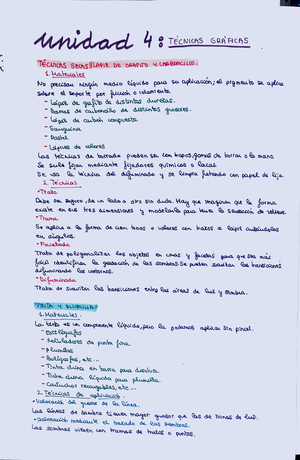 Unidad 4: TÉCNICAS GRÁFICAS
TÉCNICAS SECAS: LÁPIZ DE GRAFITO Y CARBONCILLO
1. Materiales
No precisan ningún medio líquido para su aplicación; el pigmento se aplica
sobre el soporte por fricción o rotamiento.
- Lápiz de grafito de distintas durezas.
- Barras de carboncillo de distintos grosores.
- Lápiz de carbón compuesto.
- Sanguina
- Pastel
- Lápices de colores
Las técnicas de borrado pueden ser con trapos, gomas de borrar o la mano.
Se suele fijar mediante fijadores químicos o lacas.
Se usa la técnica del difuminado y se limpia frotando con papel de lija.
2. Técnicas
• Trazo
Debe ser seguro, de un lado a otro sin duda. Hay que imaginar que la forma
existe en sus tres dimensiones y modelarla para tener la sensación de relieve.
• Trama
Se aplica a la forma de unas líneas o valores con trazos a lápiz cruzándolos
en ángulos.
• Facetado
Trata de poligonalizar los objetos en caras y facetas para que sea más
fácil identificar la gradación de las sombras. Se pueden suavizar las transiciones
difuminando los contornos.
• Difuminado
Trata de suavizar las transiciones entre las áreas de luz y sombra.
TINTA Y PLUMILLA
1. Materiales.
La tinta es un componente líquido, pero la podemos aplicar sin pincel.
- Estilógrafos
- Rotuladores de punta fina
- Plumillas
- Bolígrafos, etc...
- Tinta china en barra para disolver.
- Tinta china líquida para plumilla.
- Cartuchos recargables, etc...
2. Técnicas de aplicación.
• Valoración del grosor de la línea.
Las líneas de sombra tienen mayor grosor que las de zonas de luz.
• Valoración mediante el trazado de las sombras.
Las sombras vienen con tramas de trazos o puntos.